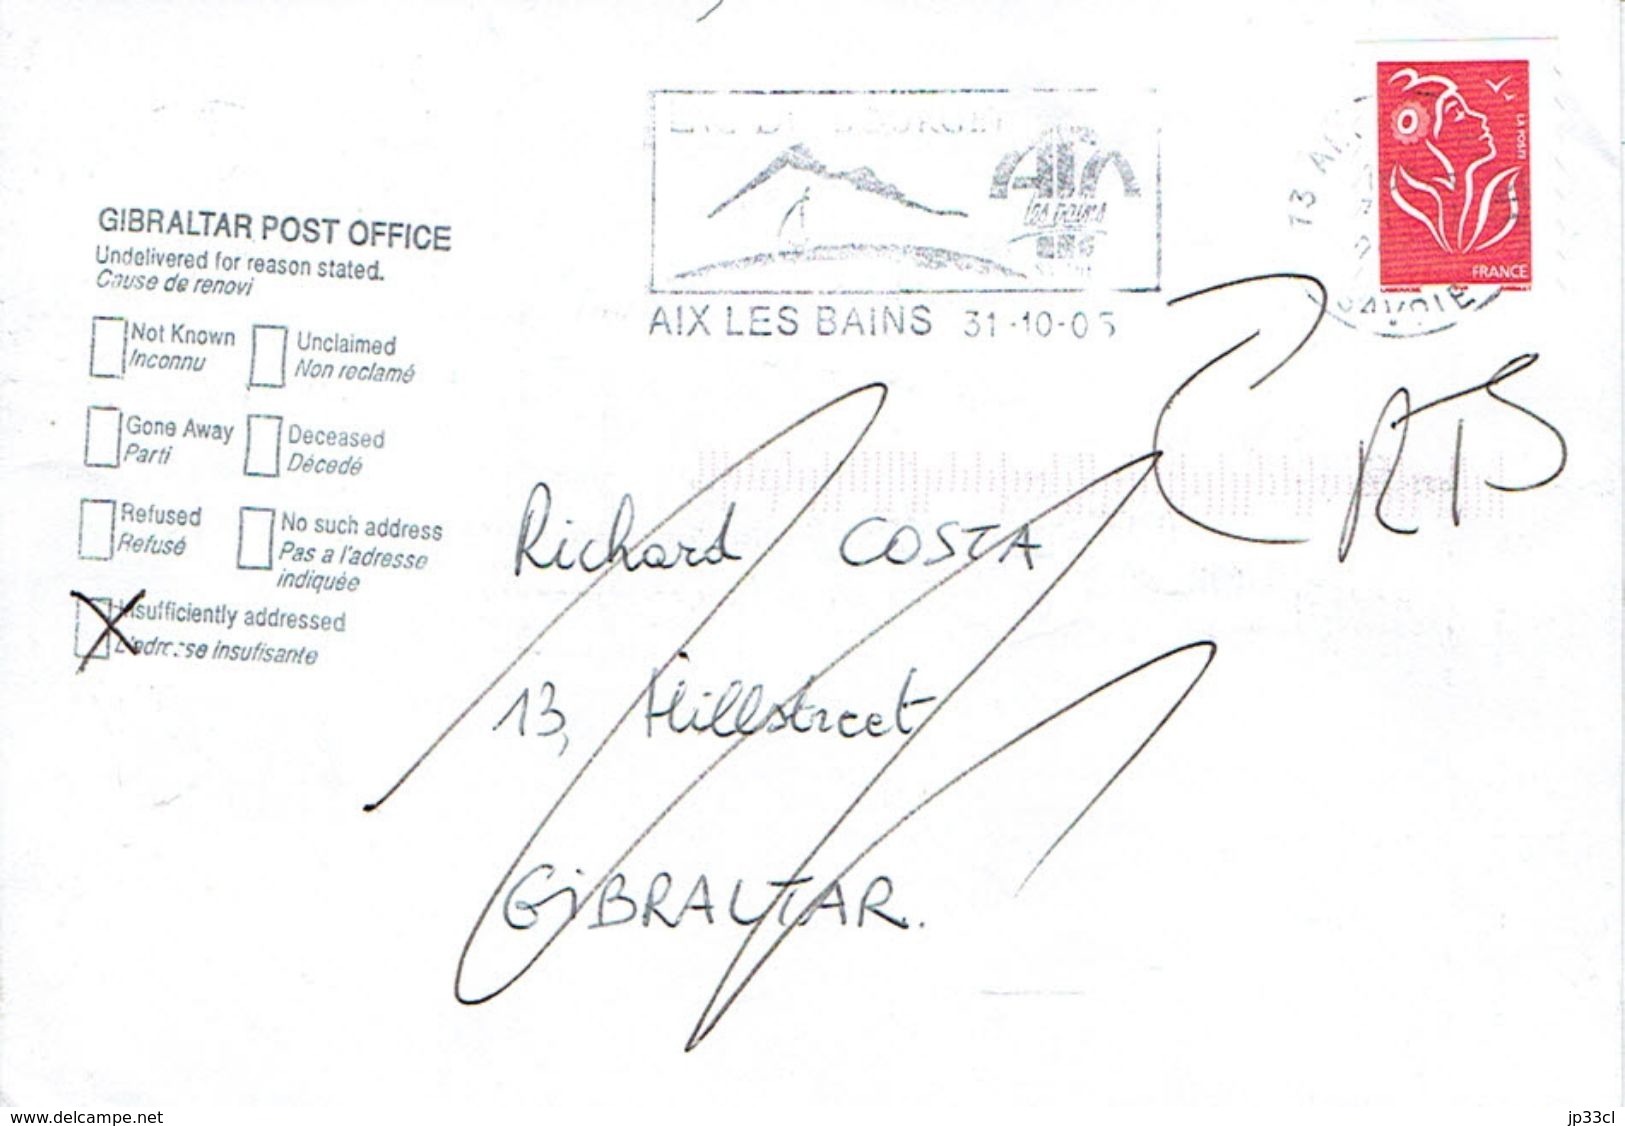 LAC DU BOURGET
Aix
les bains
AIX LES BAINS 31-10-05
13 AIX
SAVOIE
LA POSTE
FRANCE
GIBRALTAR POST OFFICE
Undelivered for reason stated.
Cause de renovi
Not Known
Inconnu
Unclaimed
Non reclamé
Gone Away
Parti
Deceased
Décedé
Refused
Refusé
No such address
Pas a l'adresse
indiquée
Insufficiently addressed
L'adresse insufisante
RTS
Richard COSTA
13, Hillstreet
GIBRALTAR.
www.delcampe.net
jp33cl